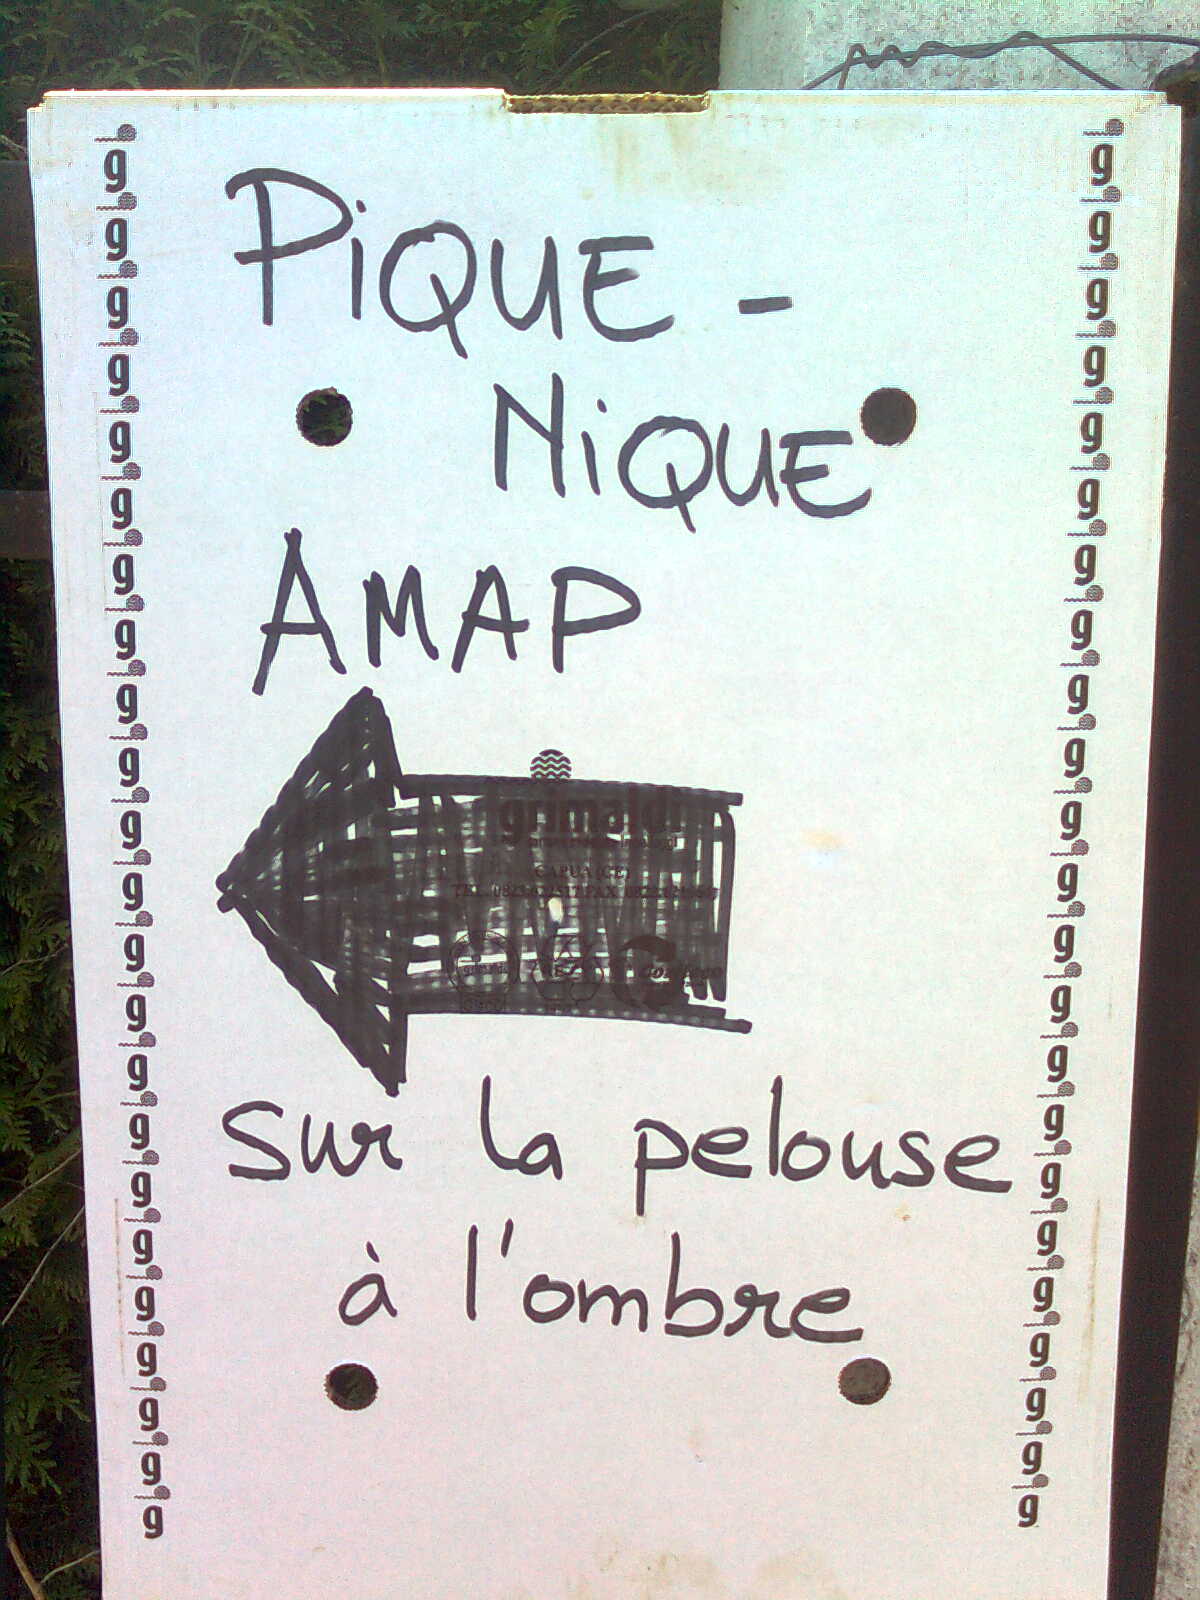 PiQUE -
NiQUE
AMAP
grimaldi
CAPUA (CE)
sur la pelouse
à l'ombre